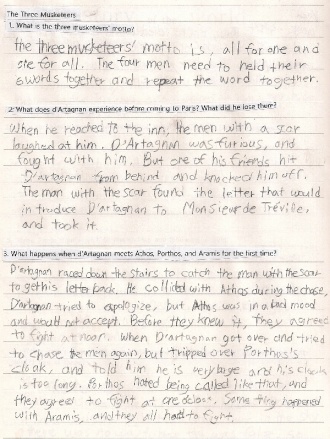 The Three Musketeers
1. What is the three musketeers' motto?
the three musketeers' motto is, all for one and
one for all. The four men need to held their
swords together and repeat the word together.
2. What does d'Artagnan experience before coming to Paris? What did he lose there?
When he reached to the inn, the men with a scar
laughed at him. D'Artagnan was furious, and
fought with him. But one of his friends hit
D'artagnan from behind and knocked him off.
The man with the scar found the letter that would
introduce D'artagnan to Monsieur de Tréville,
and took it.
3. What happens when d'Artagnan meets Athos, Porthos, and Aramis for the first time?
D'artagnan raced down the stairs to catch the man with the scar
to get his letter back. He collided with Athos during the chase,
D'artagnan tried to apologize, but Athos was in a bad mood
and would not accept. Before they knew it, they agreed
to fight at noon. When D'artagnan got over and tried
to chase the men again, but tripped over Porthos's
cloak, and told him he is very large and his cloak
is too long. Porthos hated being called like that, and
they agreed to fight at one o'clock. Some ting happened
with Aramis, and they all had to fight.